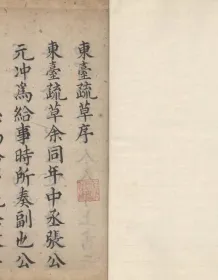 東臺疏草序
東臺疏草余同年中丞張公
元冲為給事時所奏副也公